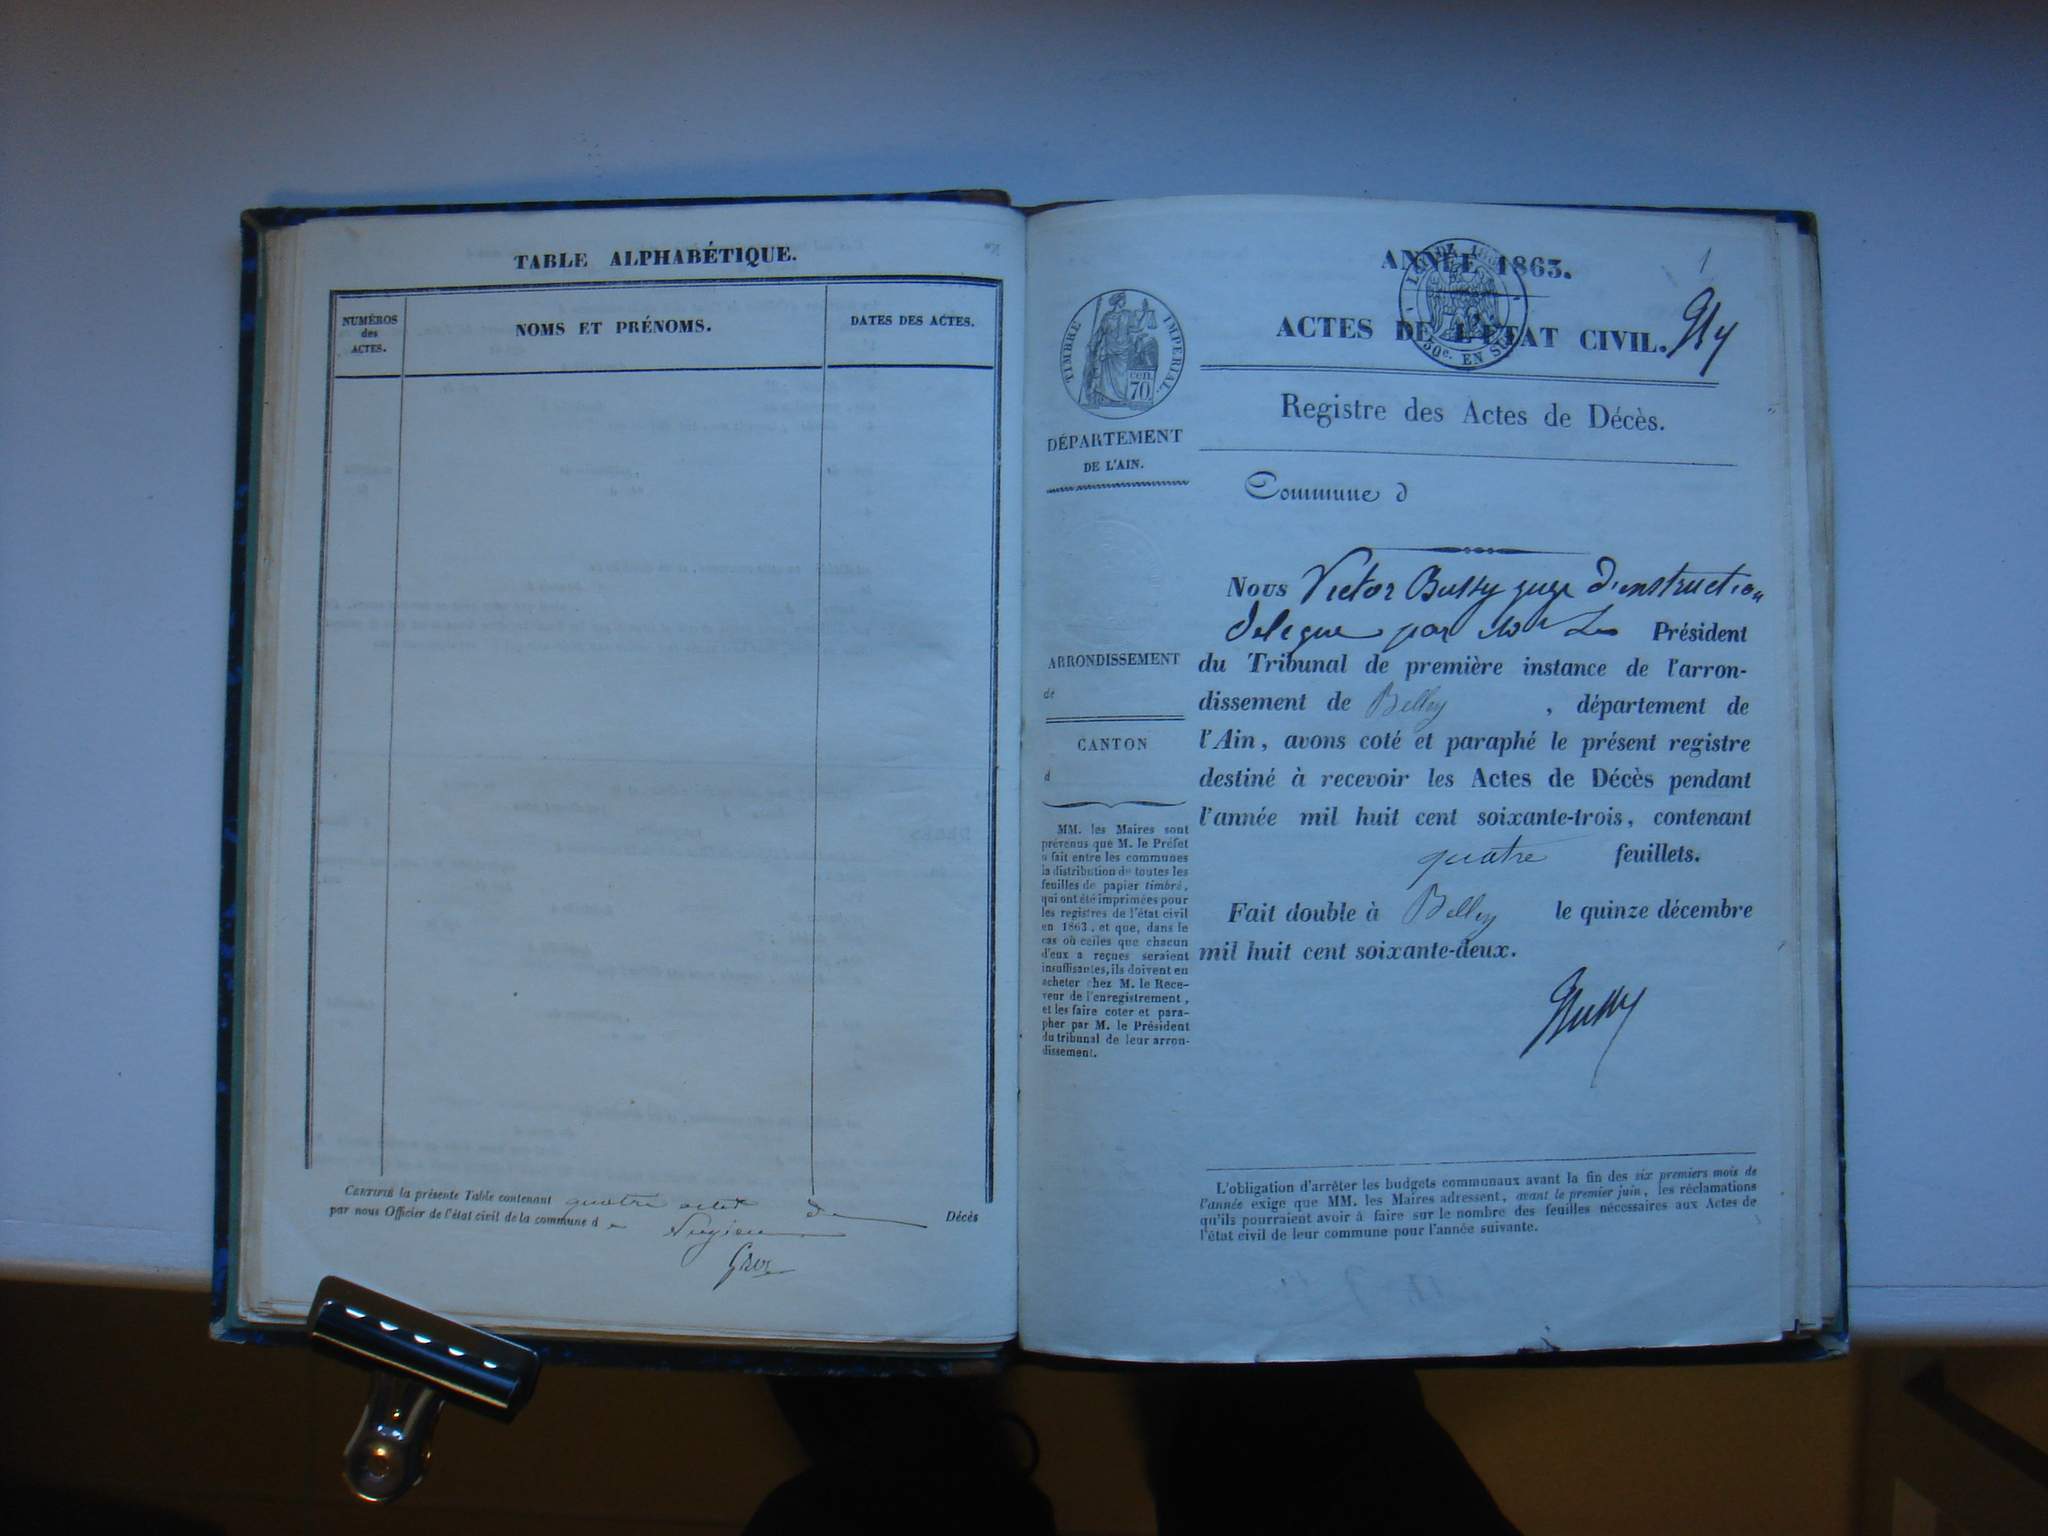 TABLE ALPHABÉTIQUE.
NUMÉROS
des
ACTES.
NOMS ET PRÉNOMS.
DATES DES ACTES.
CERTIFIÉ la présente Table contenant quatre actes de Décès
par nous Officier de l'état civil de la commune d e
1
ANNÉE 1863.
ACTES DE L'ÉTAT CIVIL.
Registre des Actes de Décès.
TIMBRE IMPÉRIAL.
cen.
70.
50c. EN SUS
DÉPARTEMENT
DE L'AIN.
Commune d
Nous Victor Bussy juge d'instruction
délégué par Le Président
du Tribunal de première instance de l'arron-
dissement de Belley , département de
l'Ain, avons coté et paraphé le présent registre
destiné à recevoir les Actes de Décès pendant
l'année mil huit cent soixante-trois, contenant
quatre feuillets.
Fait double à Belley le quinze décembre
mil huit cent soixante-deux.
Bussy
ARRONDISSEMENT
de
CANTON
d
MM. les Maires sont
prévenus que M. le Préfet
a fait entre les communes
la distribution de toutes les
feuilles de papier timbré,
qui ont été imprimées pour
les registres de l'état civil
en 1863, et que, dans le
cas où celles que chacun
d'eux a reçues seraient
insuffisantes, ils doivent en
acheter chez M. le Rece-
veur de l'enregistrement,
et les faire coter et para-
pher par M. le Président
du tribunal de leur arron-
dissement.
L'obligation d'arrêter les budgets communaux avant la fin des six premiers mois de
l'année exige que MM. les Maires adressent, avant le premier juin, les réclamations
qu'ils pourraient avoir à faire sur le nombre des feuilles nécessaires aux Actes de
l'état civil de leur commune pour l'année suivante.